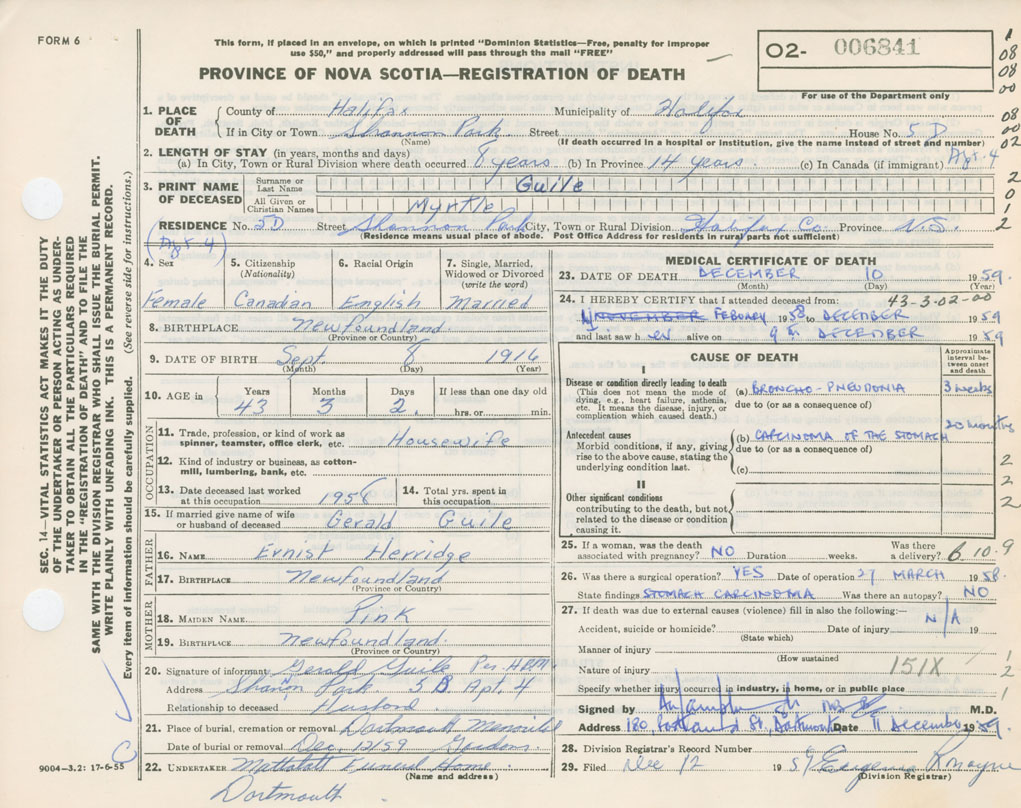 FORM 6
This form, if placed in an envelope, on which is printed "Dominion Statistics—Free, penalty for improper
use $50," and properly addressed will pass through the mail "FREE"
O2- 006841
For use of the Department only
PROVINCE OF NOVA SCOTIA—REGISTRATION OF DEATH
1
08
08
00
08
00
02
2
0
1
2
1. PLACE OF DEATH
County of Halifax Municipality of Halifax
If in City or Town Shannon Park Street House No. 5 D
(Name) (If death occurred in a hospital or institution, give the name instead of street and number)
2. LENGTH OF STAY (in years, months and days) Apt. 4
(a) In City, Town or Rural Division where death occurred 8 years (b) In Province 14 years. (c) In Canada (if immigrant)
3. PRINT NAME OF DECEASED
Surname or Last Name Guile
All Given or Christian Names Myrtle
RESIDENCE No. 5D Street Shannon Park City, Town or Rural Division Halifax Co. Province N.S.
(Apt. 4) (Residence means usual place of abode. Post Office Address for residents in rural parts not sufficient)
4. Sex Female
5. Citizenship (Nationality) Canadian
6. Racial Origin English
7. Single, Married, Widowed or Divorced (write the word) Married
8. BIRTHPLACE Newfoundland
(Province or Country)
9. DATE OF BIRTH Sept. 8 1916
(Month) (Day) (Year)
10. AGE in Years 43 Months 3 Days 2 If less than one day hrs. or min.
OCCUPATION
11. Trade, profession, or kind of work as spinner, teamster, office clerk, etc. Housewife
12. Kind of industry or business, as cotton-mill, lumbering, bank, etc.
13. Date deceased last worked at this occupation 1958 14. Total yrs. spent in this occupation
15. If married give name of wife or husband of deceased Gerald Guile
FATHER
16. NAME Ernist Herridge
17. BIRTHPLACE Newfoundland
(Province or Country)
MOTHER
18. MAIDEN NAME Pink
19. BIRTHPLACE Newfoundland
(Province or Country)
20. Signature of informant Gerald Guile Per. HRM
Address Shanon Park 5 B Apt. 4
Relationship to deceased Husband
21. Place of burial, cremation or removal Dartmouth Memorial
Date of burial or removal Dec. 12/59 Gardens
22. UNDERTAKER Mattatall Funeral Home
(Name and address)
Dartmouth
9004-3.2: 17-6-55
MEDICAL CERTIFICATE OF DEATH
23. DATE OF DEATH DECEMBER 10 1959
(Month) (Day) (Year)
24. I HEREBY CERTIFY that I attended deceased from: 43-3-02-00
NOVEMBER FEBUARY 1958 to DECEMBER 1959
and last saw her alive on 9th DECEMBER 1959
CAUSE OF DEATH
Approximate interval between onset and death
I
Disease or condition directly leading to death
(This does not mean the mode of dying, e.g., heart failure, asthenia, etc. It means the disease, injury, or complication which caused death.)
(a) BRONCHO-PNEUMONIA 3 weeks
due to (or as a consequence of)
Antecedent causes
Morbid conditions, if any, giving rise to the above cause, stating the underlying condition last.
(b) CARCINOMA OF THE STOMACH 20 months
due to (or as a consequence of)
(c)
2
2
2
II
Other significant conditions
contributing to the death, but not related to the disease or condition causing it.
25. If a woman, was the death associated with pregnancy? NO Duration weeks. Was there a delivery? 6 10.9
26. Was there a surgical operation? YES Date of operation 27 MARCH 1958.
State findings STOMACH CARCINOMA Was there an autopsy? NO
27. If death was due to external causes (violence) fill in also the following:— N/A
Accident, suicide or homicide? Date of injury 19
(State which)
Manner of injury
(How sustained)
Nature of injury 151X
1
2
1
Specify whether injury occurred in industry, in home, or in public place
Signed by M.D.
Address 180, Portland St., Dartmouth Date 11 December 1959
28. Division Registrar's Record Number
29. Filed Dec 12 1959 Eugenia Ronayne
(Division Registrar)
SEC. 14—VITAL STATISTICS ACT MAKES IT THE DUTY
OF THE UNDERTAKER OR PERSON ACTING AS UNDER-
TAKER TO OBTAIN ALL THE PARTICULARS REQUIRED
IN THE "REGISTRATION OF DEATH" AND TO FILE THE
SAME WITH THE DIVISION REGISTRAR WHO SHALL ISSUE THE BURIAL PERMIT.
WRITE PLAINLY WITH UNFADING INK. THIS IS A PERMANENT RECORD.
Every item of information should be carefully supplied. (See reverse side for instructions.)